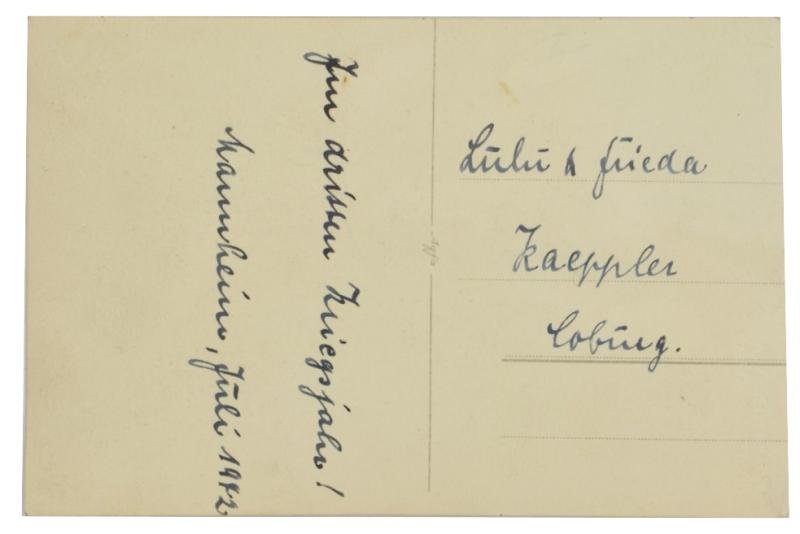 Im dritten Kriegsjahr!
Mannheim, Juli 1942
Lulu & Frieda
Kaeppler
Coburg.